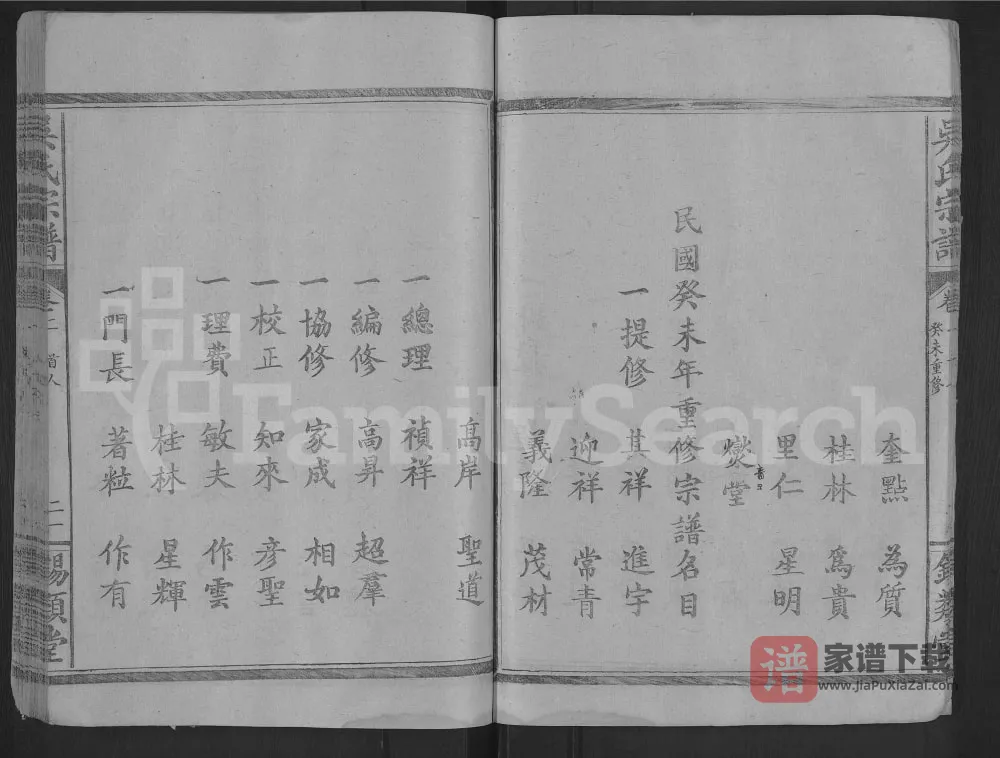 吳氏宗譜
癸未重修
奎點 為質
桂林 為貴
里仁 星明
爕堂
民國癸未年重修宗譜名目
一提修 其祥 進宇
迎祥 常青
義隆 茂材
高岸 聖道
一總理 禎祥
一編修 高昇 超羣
一協修 家成 相如
一校正 知來 彦聖
一理費 敏夫 作雲
桂林 星輝
一門長 著粒 作有
吳氏宗譜
首人
錫類堂
FamilySearch
谱 家谱下载
www.jiaPuxiazai.com